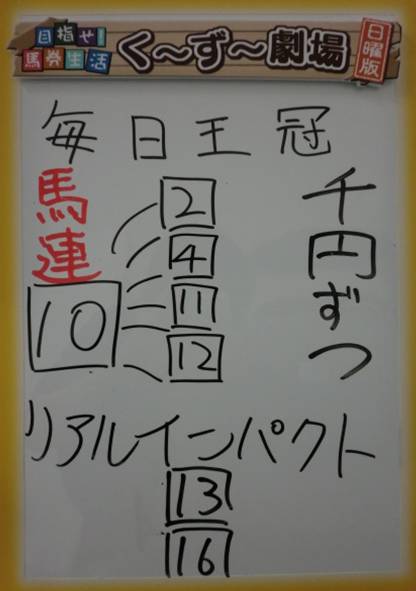 目指せ!
馬券生活
く～ず～劇場
日曜版
毎日王冠
馬連
千円ずつ
2
4
11
12
10
リアルインパクト
13
16